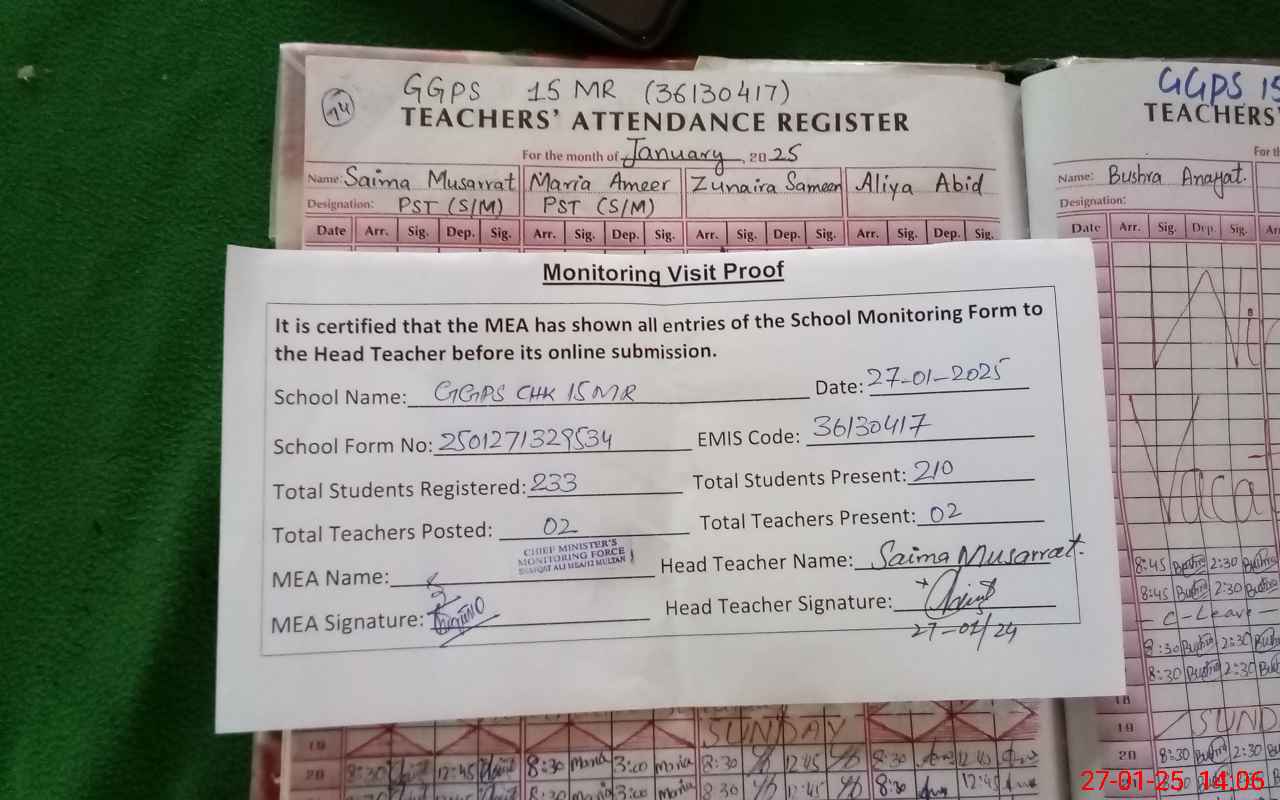 74
GGPS 15 MR (36130417)
TEACHERS' ATTENDANCE REGISTER
For the month of January, 2025
Name: Saima Musarrat Maria Ameer Zunaira Sameen Aliya Abid
Designation: PST (S/M) PST (S/M)
Date Arr. Sig. Dep. Sig. Arr. Sig. Dep. Sig. Arr. Sig. Dep. Sig. Arr. Sig. Dep. Sig.
GGPS 15
TEACHERS'
For th
Name: Bushra Anayat.
Designation:
Date Arr. Sig. Dep. Sig. Arr
Monitoring Visit Proof
It is certified that the MEA has shown all entries of the School Monitoring Form to
the Head Teacher before its online submission.
School Name: GGPS CHK 15 MR Date: 27-01-2025
School Form No: 2501271329534 EMIS Code: 36130417
Total Students Registered: 233 Total Students Present: 210
Total Teachers Posted: 02 Total Teachers Present: 02
CHIEF MINISTER'S
MONITORING FORCE
SHAFQAT ALI MEA/12 MULTAN
MEA Name: Head Teacher Name: Saima Musarrat.
MEA Signature: Head Teacher Signature:
27-01/24
8:45 Bushra 2:30 Bushra
8:45 Bushra 2:30 Bushra
- C-Leave -
8:30 Bushra 2:30 Bushra
8:30 Bushra 2:30 Bu
18
19 SUND
20 8:30 Bushra 2:30 Bushra
19 SUNDAY
20 8:30 12:45 8:30 Maria 3:00 Maria 8:30 12:45 8:30 12:45
8:30 Maria 3:00 Maria 8:30 12:45 8:30 12:45
27-01-25 14:06